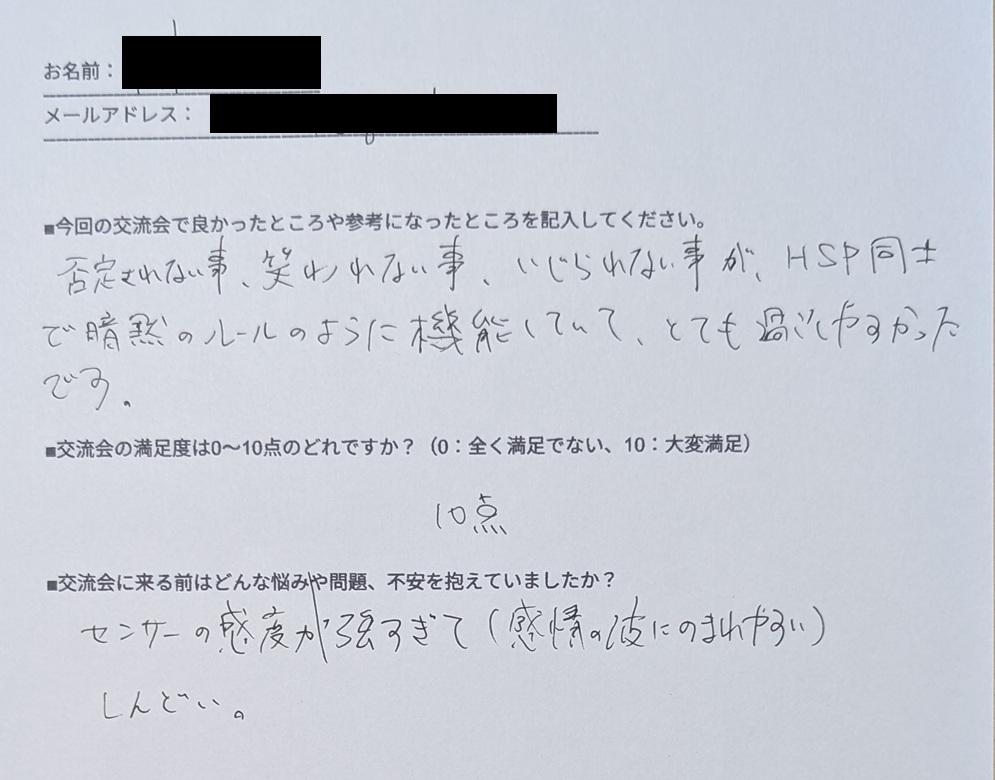 お名前：
メールアドレス：
■今回の交流会で良かったところや参考になったところを記入してください。
否定されない事、笑われない事、いじられない事が、HSP同士
で暗黙のルールのように機能していて、とても過ごしやすかった
です。
■交流会の満足度は0～10点のどれですか？（0：全く満足でない、10：大変満足）
10点
■交流会に来る前はどんな悩みや問題、不安を抱えていましたか？
センサーの感度が強すぎて（感情の波にのまれやすい）
しんどい。